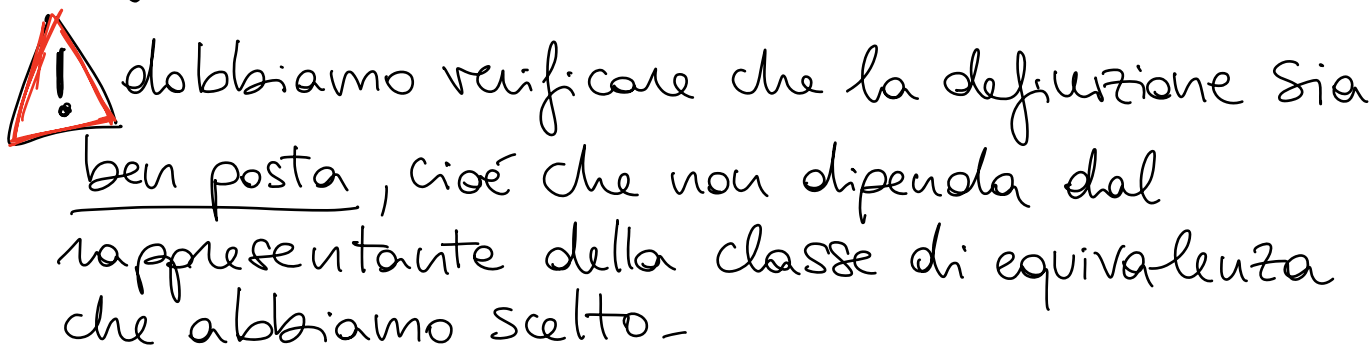 ! dobbiamo verificare che la definizione sia
ben posta, cioé che non dipenda dal
rappresentante della classe di equivalenza
che abbiamo scelto.